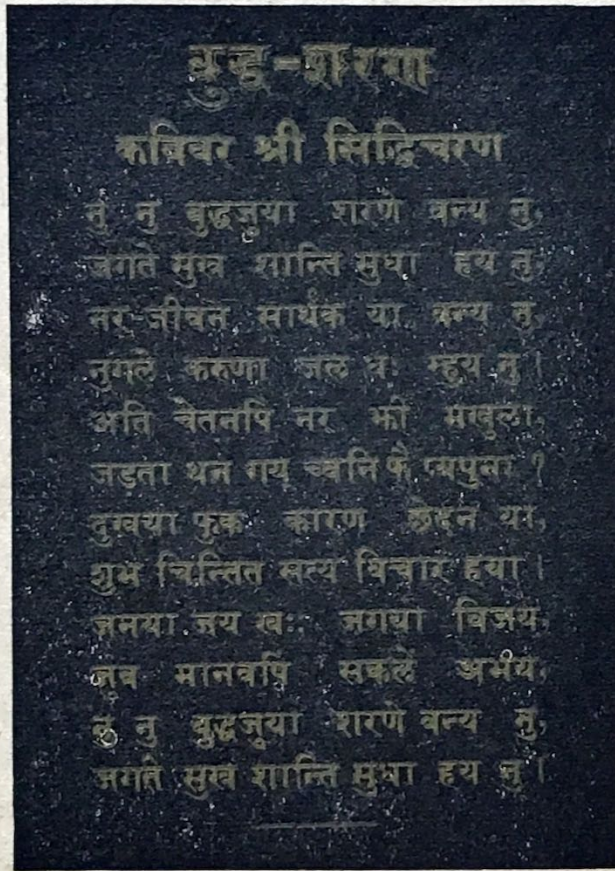 बुद्ध-शरण
कविवर श्री सिद्धिचरण
नु नु बुद्धजुया शरणे वन्य नु,
जगते सुख शान्ति सुधा हय नु,
नर जीवन सार्थक या वन्य नु,
नुगले करुणा जल वः म्हुय नु ।
अति चेतनपि नर झी मखुला,
जड़ता थन गय् च्वनि
दुखया फुक्क कारण छेदन या,
शुभ चिन्तित सत्य विचार हया ।
जनया जय खः, जगया विजय,
जुव मानवपि सकलें अभय,
नु नु बुद्धजुया शरणे वन्य नु,
जगते सुख शान्ति सुधा हय नु ।